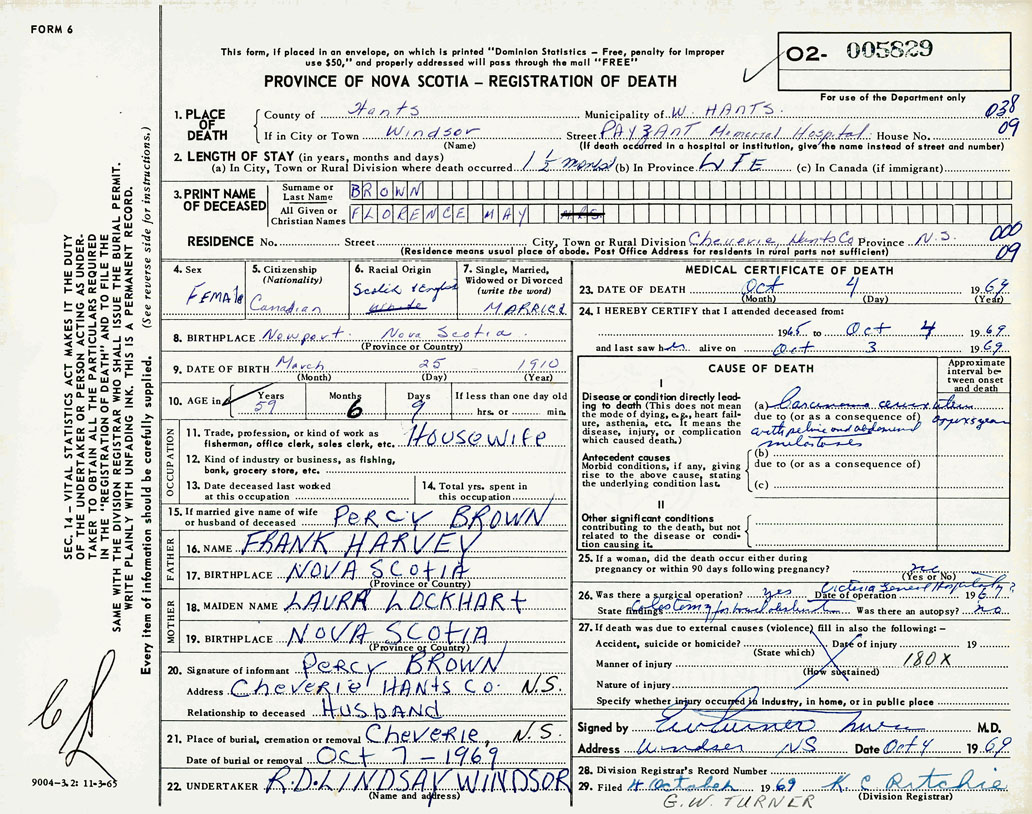 FORM 6
This form, if placed in an envelope, on which is printed "Dominion Statistics – Free, penalty for improper
use $50," and properly addressed will pass through the mail "FREE"
O2- 005829
PROVINCE OF NOVA SCOTIA – REGISTRATION OF DEATH
For use of the Department only
1. PLACE OF DEATH County of Hants Municipality of W. HANTS. 038
If in City or Town Windsor Street PAYZANT Memorial Hospital House No. 09
(Name) (If death occurred in a hospital or institution, give the name instead of street and number)
2. LENGTH OF STAY (in years, months and days)
(a) In City, Town or Rural Division where death occurred 1 1/2 months (b) In Province LIFE (c) In Canada (if immigrant)
3. PRINT NAME OF DECEASED Surname or Last Name BROWN
All Given or Christian Names FLORENCE MAY MRS
RESIDENCE No. Street City, Town or Rural Division Cheverie, Hants Co Province N.S. 000
(Residence means usual place of abode. Post Office Address for residents in rural parts not sufficient) 09
4. Sex FEMALE
5. Citizenship (Nationality) Canadian
6. Racial Origin Scotch & English White
7. Single, Married, Widowed or Divorced (write the word) MARRIED
8. BIRTHPLACE Newport Nova Scotia
(Province or Country)
9. DATE OF BIRTH March 25 1910
(Month) (Day) (Year)
10. AGE in Years 59 Months 6 Days 9 If less than one day old
hrs. or min.
OCCUPATION
11. Trade, profession, or kind of work as
fisherman, office clerk, sales clerk, etc. HOUSEWIFE
12. Kind of industry or business, as fishing,
bank, grocery store, etc.
13. Date deceased last worked
at this occupation
14. Total yrs. spent in
this occupation
15. If married give name of wife
or husband of deceased PERCY BROWN
FATHER
16. NAME FRANK HARVEY
17. BIRTHPLACE NOVA SCOTIA
(Province or Country)
MOTHER
18. MAIDEN NAME LAURA LOCKHART
19. BIRTHPLACE NOVA SCOTIA
(Province or Country)
20. Signature of informant PERCY BROWN
Address CHEVERIE HANTS CO. N.S.
Relationship to deceased HUSBAND
21. Place of burial, cremation or removal CHEVERIE, N.S.
Date of burial or removal OCT 7 - 1969
22. UNDERTAKER R.D. LINDSAY WINDSOR
(Name and address)
MEDICAL CERTIFICATE OF DEATH
23. DATE OF DEATH Oct 4 1969
(Month) (Day) (Year)
24. I HEREBY CERTIFY that I attended deceased from:
1965 to Oct 4 1969
and last saw her alive on Oct 3 1969
CAUSE OF DEATH
Approximate interval between onset and death
I
Disease or condition directly leading to death (This does not mean the mode of dying, e.g., heart failure, asthenia, etc. It means the disease, injury, or complication which caused death.)
(a) Carcinoma cervix uteri
due to (or as a consequence of) approx 5 years
with pelvic and abdominal
metastases
Antecedent causes
Morbid conditions, if any, giving rise to the above cause, stating the underlying condition last.
(b)
due to (or as a consequence of)
(c)
II
Other significant conditions
contributing to the death, but not related to the disease or condition causing it.
25. If a woman, did the death occur either during
pregnancy or within 90 days following pregnancy? no
(Yes or No)
Victoria General Hospital
26. Was there a surgical operation? yes Date of operation 196
State findings Colostomy for Was there an autopsy? no
27. If death was due to external causes (violence) fill in also the following:–
Accident, suicide or homicide? Date of injury 19
(State which)
Manner of injury 180X
(How sustained)
Nature of injury
Specify whether injury occurred in Industry, in home, or in public place
Signed by G W Turner M.D.
Address Windsor NS Date Oct 4 1969
28. Division Registrar's Record Number
29. Filed 4 October 1969 K. C. Ritchie
(Division Registrar)
G. W. TURNER
SEC. 14 – VITAL STATISTICS ACT MAKES IT THE DUTY
OF THE UNDERTAKER OR PERSON ACTING AS UNDER-
TAKER TO OBTAIN ALL THE PARTICULARS REQUIRED
IN THE "REGISTRATION OF DEATH" AND TO FILE THE
SAME WITH THE DIVISION REGISTRAR WHO SHALL ISSUE THE BURIAL PERMIT.
WRITE PLAINLY WITH UNFADING INK. THIS IS A PERMANENT RECORD.
Every item of information should be carefully supplied. (See reverse side for instructions.)
9004-3.2: 11-3-65